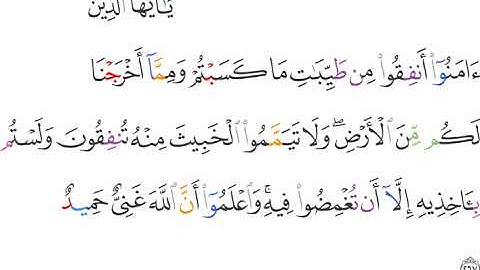 يَٰٓأَيُّهَا ٱلَّذِينَ
ءَامَنُوٓا۟ أَنفِقُوا۟ مِن طَيِّبَٰتِ مَا كَسَبْتُمْ وَمِمَّآ أَخْرَجْنَا
لَكُم مِّنَ ٱلْأَرْضِ ۖ وَلَا تَيَمَّمُوا۟ ٱلْخَبِيثَ مِنْهُ تُنفِقُونَ وَلَسْتُم
بِـَٔاخِذِيهِ إِلَّآ أَن تُغْمِضُوا۟ فِيهِ ۚ وَٱعْلَمُوٓا۟ أَنَّ ٱللَّهَ غَنِىٌّ حَمِيدٌ
٢٦٧